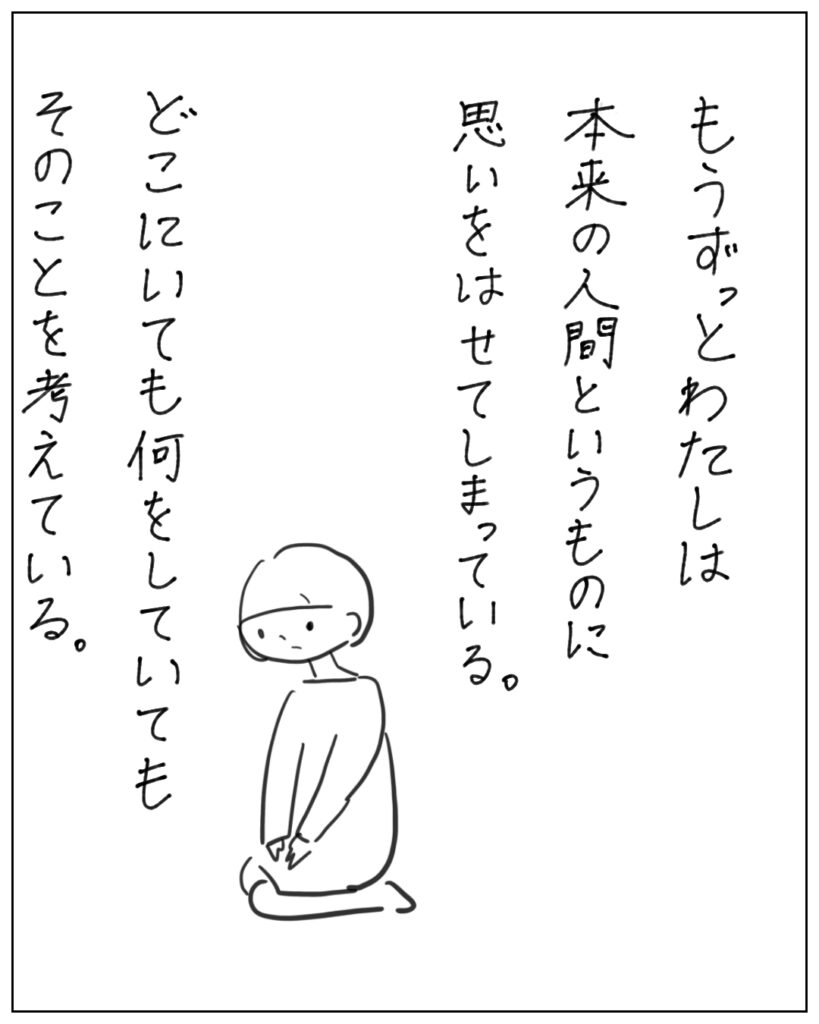 もうずっとわたしは
本来の人間というものに
思いをはせてしまっている。
どこにいても何をしていても
そのことを考えている。